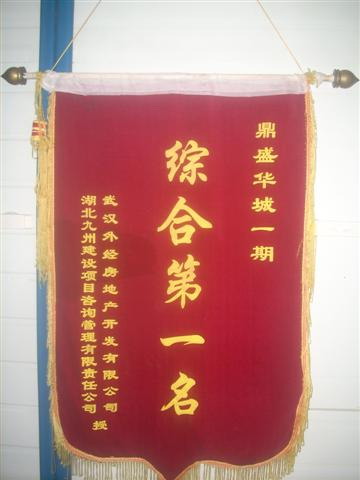 鼎盛华城一期
综合第一名
武汉外经房地产开发有限公司
湖北九州建设项目咨询管理有限责任公司
授